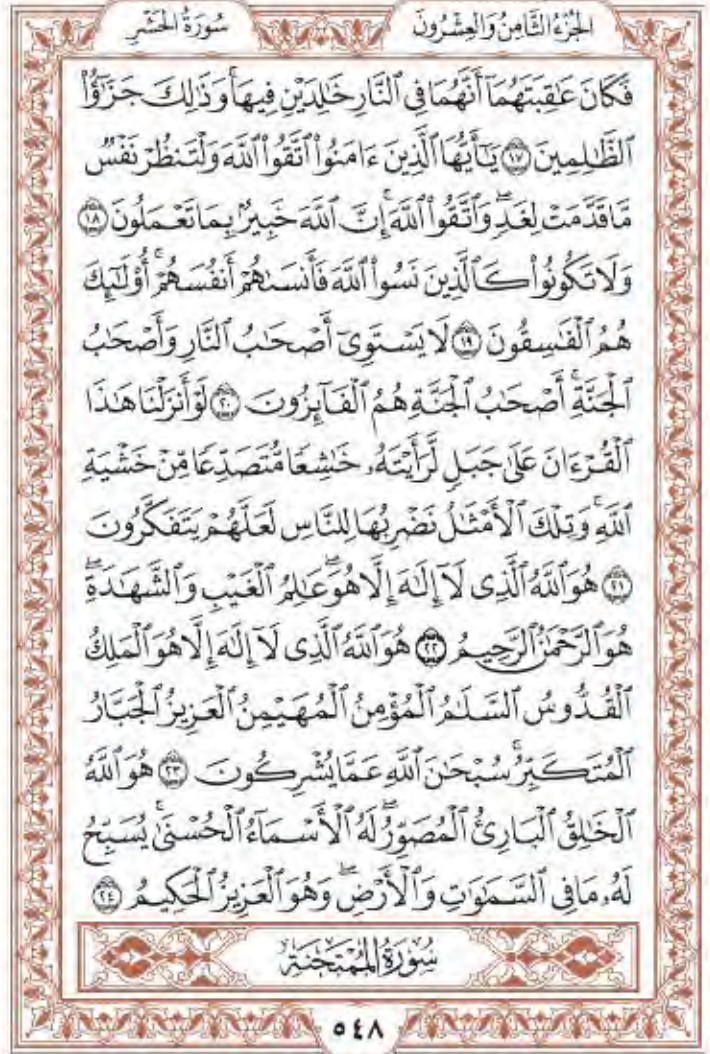 الجُزْءُ الثَّامِنُ وَالعِشْرُونَ سُورَةُ الحَشْرِ
فَكَانَ عَٰقِبَتَهُمَآ أَنَّهُمَا فِي ٱلنَّارِ خَٰلِدَيْنِ فِيهَاۚ وَذَٰلِكَ جَزَٰٓؤُاْ
ٱلظَّٰلِمِينَ ١٧ يَٰٓأَيُّهَا ٱلَّذِينَ ءَامَنُواْ ٱتَّقُواْ ٱللَّهَ وَلْتَنظُرْ نَفْسٌ
مَّا قَدَّمَتْ لِغَدٍۖ وَٱتَّقُواْ ٱللَّهَۚ إِنَّ ٱللَّهَ خَبِيرٌۢ بِمَا تَعْمَلُونَ ١٨
وَلَا تَكُونُواْ كَٱلَّذِينَ نَسُواْ ٱللَّهَ فَأَنسَىٰهُمْ أَنفُسَهُمْۚ أُوْلَٰٓئِكَ
هُمُ ٱلْفَٰسِقُونَ ١٩ لَا يَسْتَوِيٓ أَصْحَٰبُ ٱلنَّارِ وَأَصْحَٰبُ
ٱلْجَنَّةِۚ أَصْحَٰبُ ٱلْجَنَّةِ هُمُ ٱلْفَآئِزُونَ ٢٠ لَوْ أَنزَلْنَا هَٰذَا
ٱلْقُرْءَانَ عَلَىٰ جَبَلٍ لَّرَأَيْتَهُۥ خَٰشِعًا مُّتَصَدِّعًا مِّنْ خَشْيَةِ
ٱللَّهِۚ وَتِلْكَ ٱلْأَمْثَٰلُ نَضْرِبُهَا لِلنَّاسِ لَعَلَّهُمْ يَتَفَكَّرُونَ
٢١ هُوَ ٱللَّهُ ٱلَّذِي لَآ إِلَٰهَ إِلَّا هُوَۖ عَٰلِمُ ٱلْغَيْبِ وَٱلشَّهَٰدَةِۖ
هُوَ ٱلرَّحْمَٰنُ ٱلرَّحِيمُ ٢٢ هُوَ ٱللَّهُ ٱلَّذِي لَآ إِلَٰهَ إِلَّا هُوَ ٱلْمَلِكُ
ٱلْقُدُّوسُ ٱلسَّلَٰمُ ٱلْمُؤْمِنُ ٱلْمُهَيْمِنُ ٱلْعَزِيزُ ٱلْجَبَّارُ
ٱلْمُتَكَبِّرُۚ سُبْحَٰنَ ٱللَّهِ عَمَّا يُشْرِكُونَ ٢٣ هُوَ ٱللَّهُ
ٱلْخَٰلِقُ ٱلْبَارِئُ ٱلْمُصَوِّرُۖ لَهُ ٱلْأَسْمَآءُ ٱلْحُسْنَىٰۚ يُسَبِّحُ
لَهُۥ مَا فِي ٱلسَّمَٰوَٰتِ وَٱلْأَرْضِۖ وَهُوَ ٱلْعَزِيزُ ٱلْحَكِيمُ ٢٤
سُورَةُ المُمْتَحِنَةِ
٥٤٨